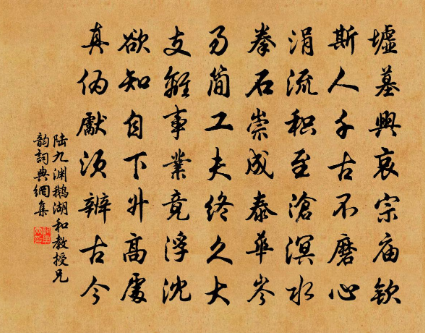 墟墓興哀宗庙钦
斯人千古不磨心
涓流积至滄溟水
拳石崇成泰華岑
易简工夫终久大
支離事業竟浮沈
欲知自下升高處
真伪獻须辨古今
陆九渊鹅湖和教授兄
韵詞典網集